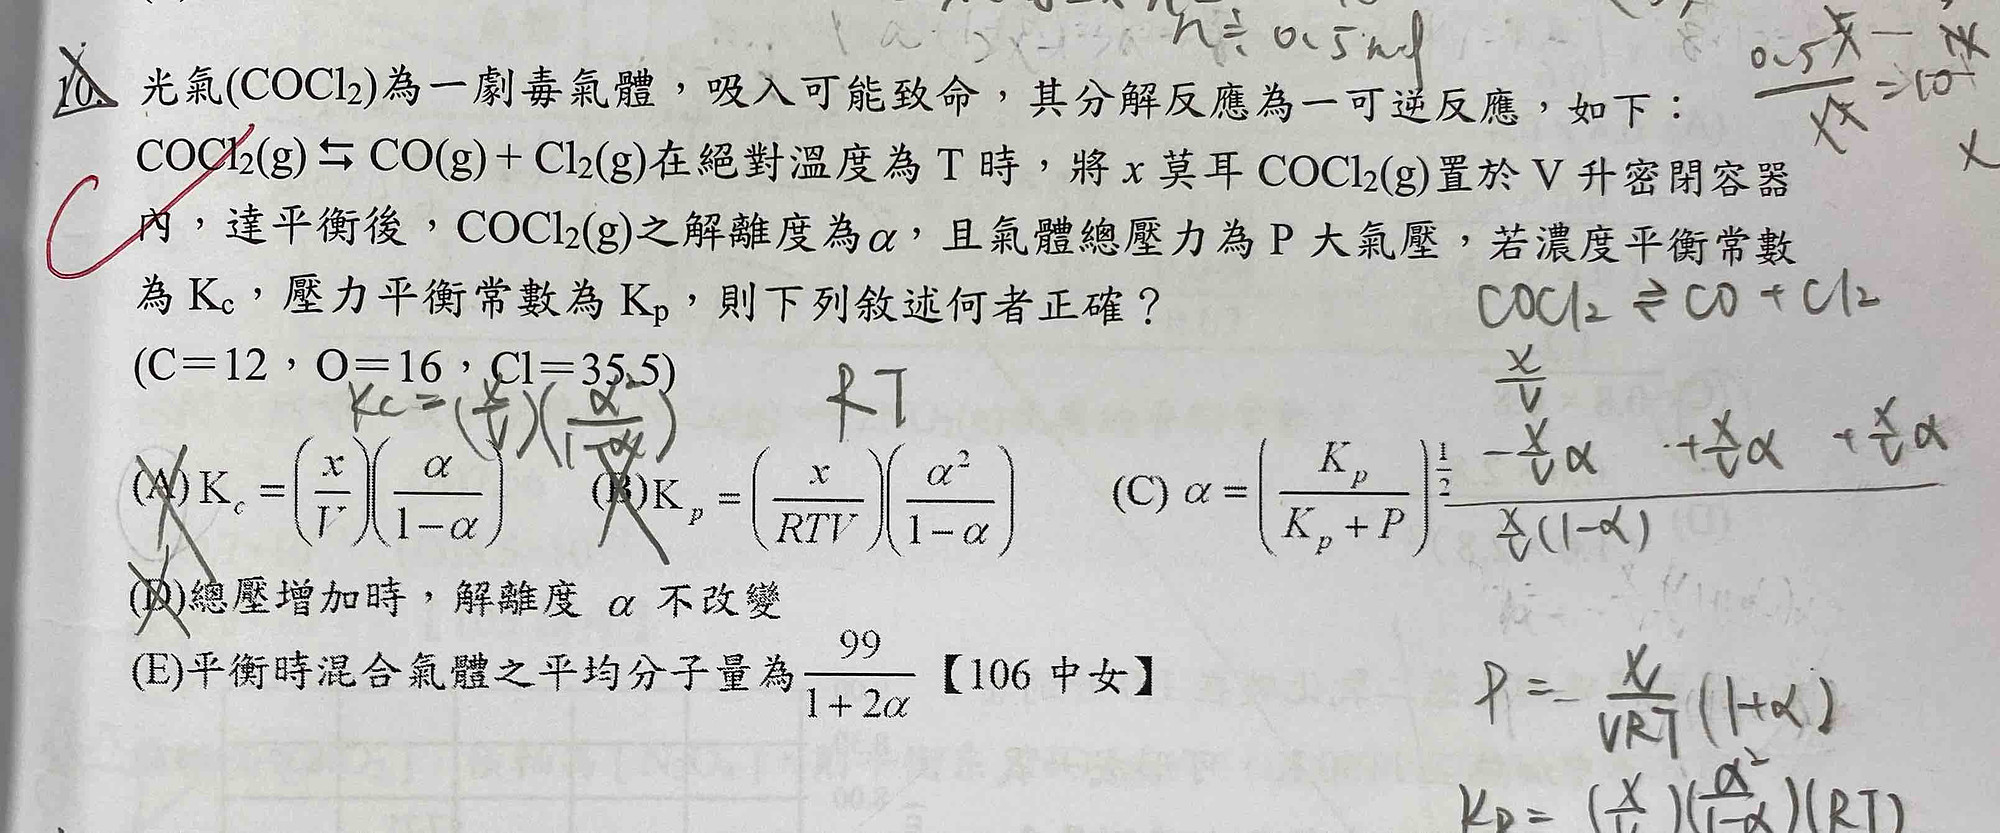 n≒0.5mol
10. 光氣(COCl₂)為一劇毒氣體，吸入可能致命，其分解反應為一可逆反應，如下：
COCl₂(g)⇆CO(g)+Cl₂(g)在絕對溫度為 T 時，將 x 莫耳 COCl₂(g)置於 V 升密閉容器
內，達平衡後，COCl₂(g)之解離度為α，且氣體總壓力為 P 大氣壓，若濃度平衡常數
為 K_c，壓力平衡常數為 K_p，則下列敘述何者正確？
COCl₂ ⇌ CO + Cl₂
(C＝12，O＝16，Cl＝35.5)
x/V
Kc = (x/V)(α²/(1-α))
RT
-x/V α +x/V α +x/V α
(A) K_c = (x/V)(α/(1-α)) (B) K_p = (x/RTV)(α²/(1-α)) (C) α = (K_p/(K_p+P))^(1/2)
x/V(1-α)
(D)總壓增加時，解離度 α 不改變
(E)平衡時混合氣體之平均分子量為 99/(1+2α)【106 中女】
P = x/VRT (1+α)
Kp = (x/V)(α²/(1-α))(RT)